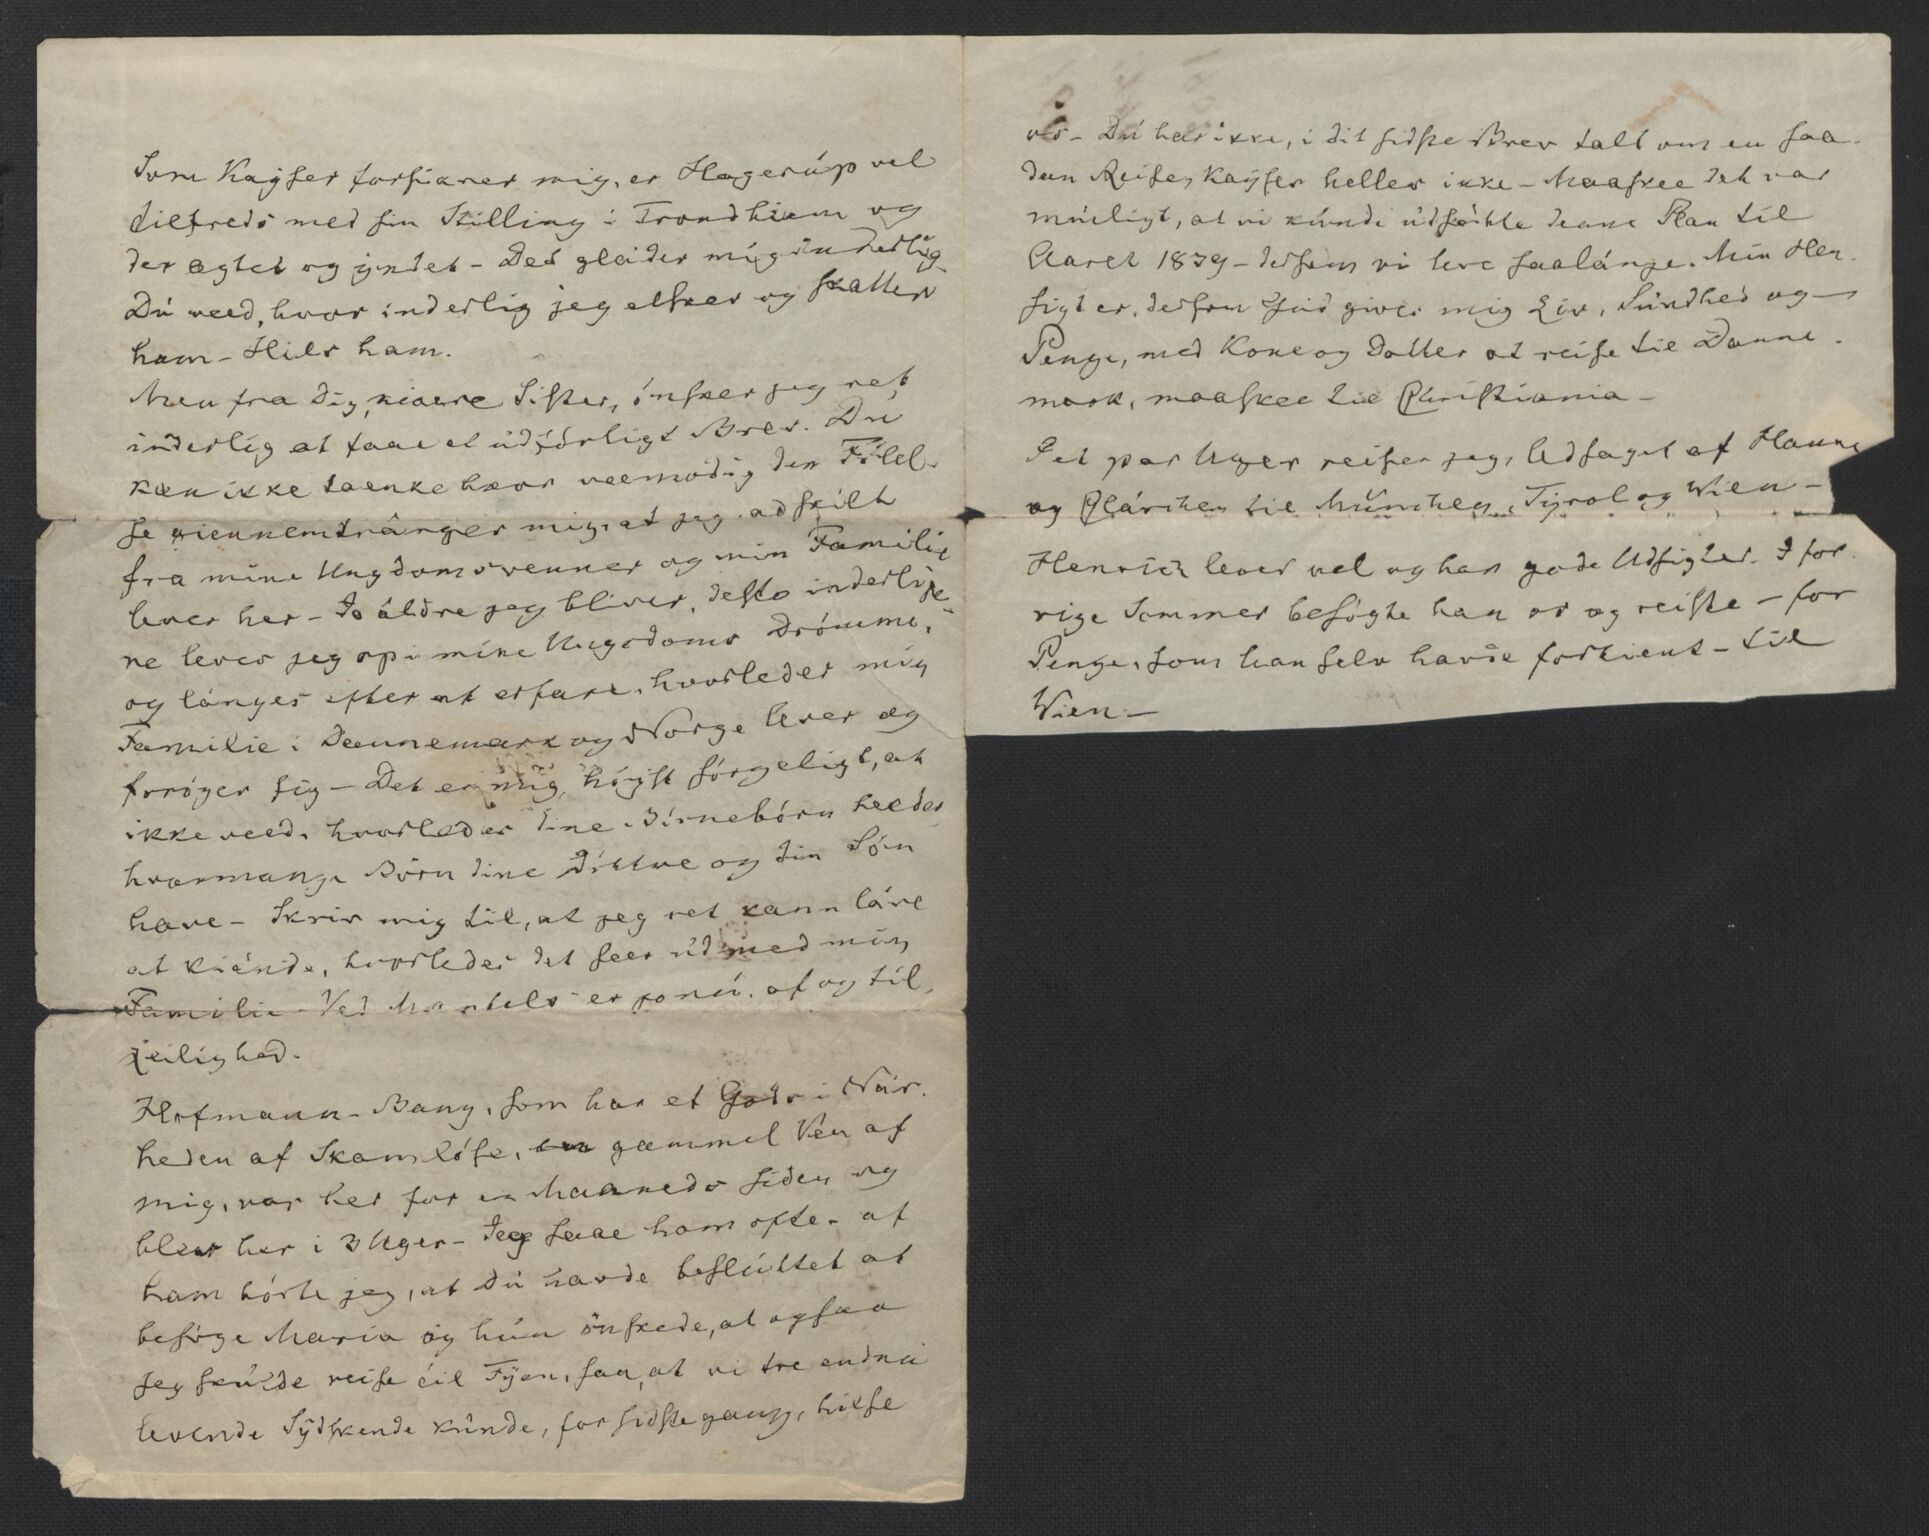 Som Kaÿser forsikrer mig, er Hagerúp vel
tilfreds med sin Stilling i Trondhiem og
der agtet og ÿndet – Det gleider mig inderlig
Dú veed, hvor inderlig jeg elsker og skatter
ham – Hils ham.
Men fra dig, kiaere Sister, ónsker jeg ret
inderlig at faae et údfórligt Brev. Du
kan ikke taenke hvor veemodig den Fólel-
se giennemtránger mig, at jeg adskilt
fra mine Ungdomsvenner og min Familie
lever her – Jo áldre jeg bliver, desto inderlige-
re lever jeg op i mine Ungdoms Drómme,
og lánges efter at erfare, hvorledes mig
Familie i Dannemark og Norge lever og
foróger sig – Det er mig, hóÿst sórgeligt, at
ikke veed, hvorledes dine Bórnebórn heeder
hvormange Bórn dine Dóttre og din Són
have – Skriv mig til, at jeg ret kann láre
at kiánde, hvorledes det seer úd med min
Familie. Ved Mantels er jo nú, af og til,
Leilighed.
Hofmann-Bang, som har et Gods i Nár-
heden af Skamlóse, en gammel Ven af
mig, var her for en Maaneds siden og
blev her i 3 Uger – Jeg saae ham ofte – af
ham hórte jeg, at Dú havde beslúttet at
besóge Maria og hún ónskede, at ogsaa
jeg skúlde reise til Fÿen, saa, at vi tre endnú
levende Sÿdskende kúnde, for sidste gang, hilse
os – Dú har ikke, i dit sidste Brev talt om en saa-
dan Reise, Kaÿser heller ikke – Maaskee det var
múeligt, at vi kúnde údfóhre denne Plan til
Aaret 1839 – dersom vi leve saalánge. Min Hen-
sigt er, dersom Gud giver mig Liv, Súndhed og
Penge, med Kone og Datter at reise til Danne-
mark, maaskee til Christiania –
I et par Uger reiser jeg, ledsaget af Hanne
og Clárchen til Múnchen, Tÿrol og Wien –
Henrich lever vel og har gode Udsigter. I for-
rige Sommer besógte han os og reiste – for
Penge, som han selv havde fortient – til
Wien –